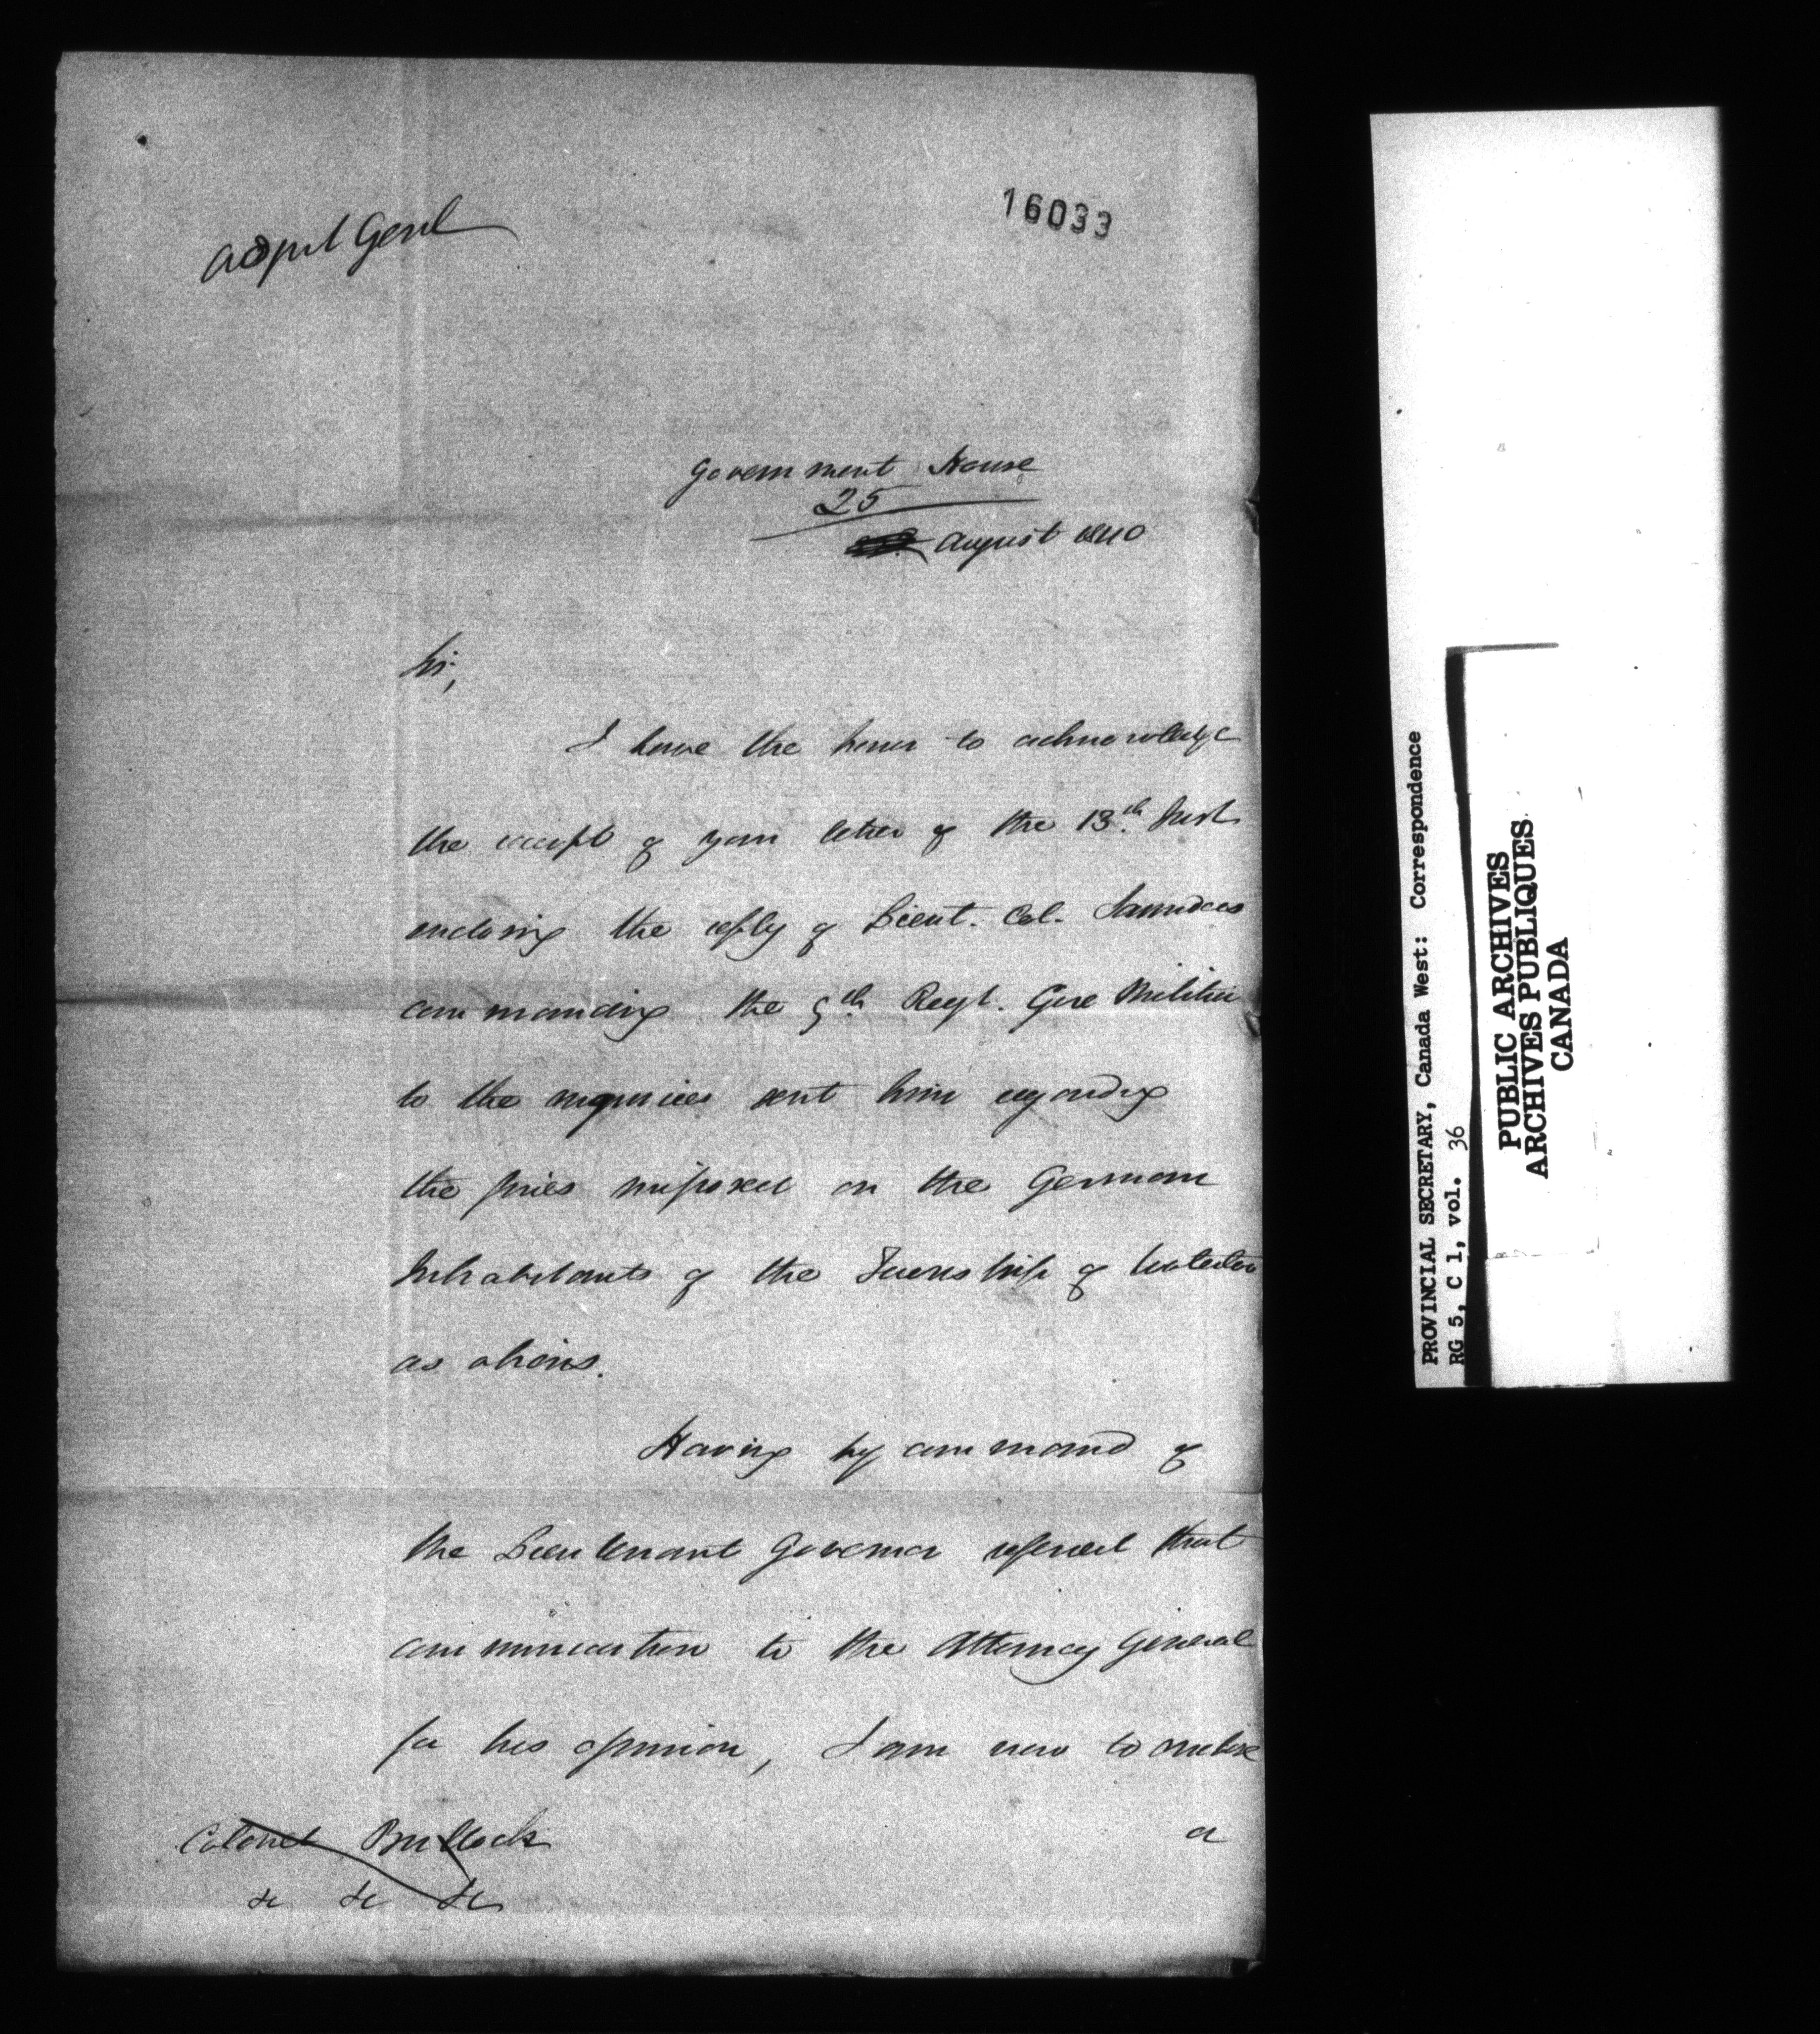 16033
Adjut Genl
Government House
25
August 1840
Sir,
I have the honor to acknowledge
the receipt of your letter of the 13th. Inst
enclosing the reply of Lieut. Col. Saunders
commanding the 9th Regt. Gore Militia
to the inquiries sent him regarding
the fines imposed on the German
Inhabitants of the Township of
as aliens.
Having by command of
the Lieutenant Governor referred that
communication to the Attorney General
for his opinion, I am now to
a
Colonel Bullock
&c &c &c
PROVINCIAL SECRETARY, Canada West: Correspondence
RG 5, C 1, vol. 36
PUBLIC ARCHIVES
ARCHIVES PUBLIQUES
CANADA